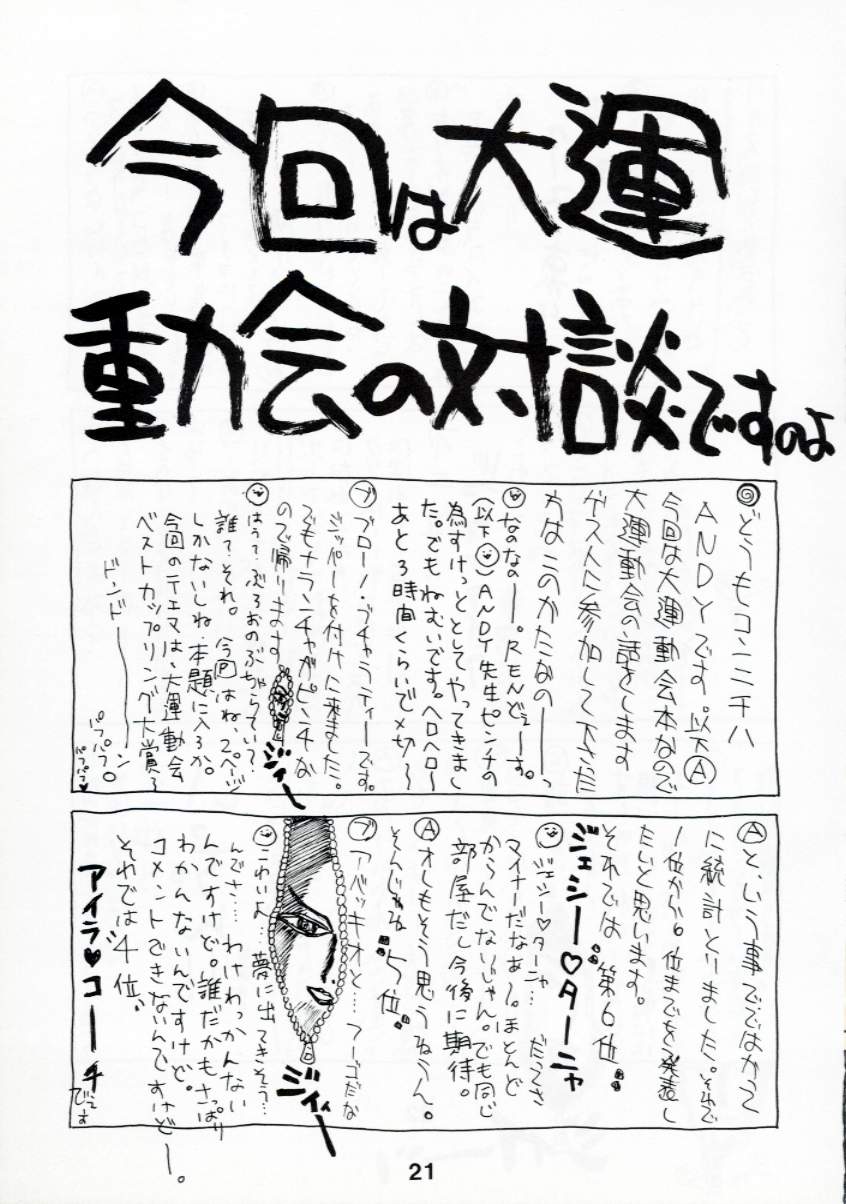 今回は大運
動会の対談ですのよ
どうもコンニチハ
ANDYです。以下Ⓐ
今回は大運動会本なので
大運動会の話をします
ゲストに参加して下さった
かたはこのかたなのーーっ
なのなのー。RENどぇーす。
(以下　)ANDY先生ピンチの
為すけっととしてやってきまし
た。でもねむいです。ヘロヘロ〜
あと3時間くらいで〆切〜
ブ ブローノ・ブチャラティーです。
ジッパーを付けに来ました。
でもナランチャがピンチな
ので帰ります
ジィー
はうって、ぶろおのぶちゃらていって
誰てそれ。今回はね、2ページ
しかないしね・本題に入ろか。
今回のテエマは、大運動会
ベストカップリング大賞〜
ドンドーーーン
パフパフ〇
パフパフ♥
Ⓐと、いう事でではかって
に統計とりました。それで
1位から6位までを発表し
たいと思います。
それでは"第6位"
ジェシー♡ターニャ
ジェシー♡ターニャ… だってさ
マイナーだなぁ〜。ほとんど
からんでないじゃん。でも同じ
部屋だし今後に期待。
Ⓐオレもそう思うねうん。
そんじゃね"5位"
ブ アバッキオと… フーゴだな
ジィィー
こわいよ… 夢に出てきそう…
んでさ… わけわっかんない
んですけど。誰だかもさっぱり
わかんないんですけど。
コメントできないんですけどー。
それでは"4位"
アイラ♥コーチです
21